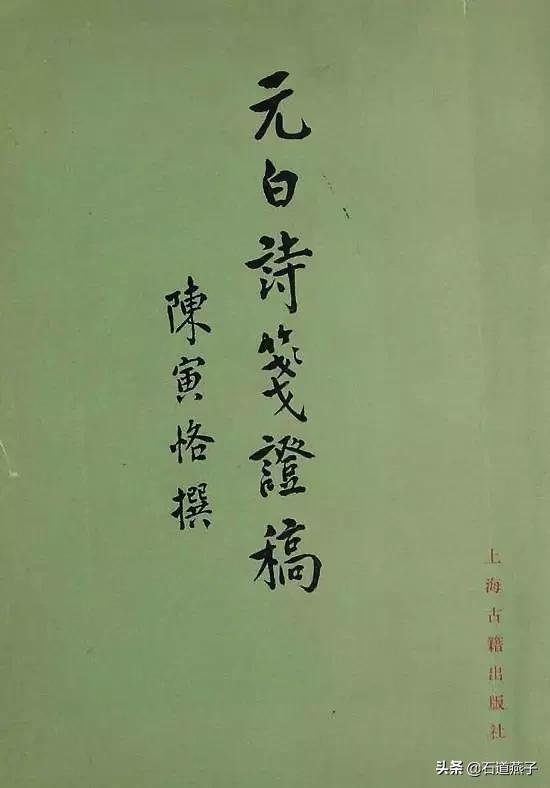 元白詩箋證稿
陳寅恪撰
上海古籍出版社
头条 @石道燕子